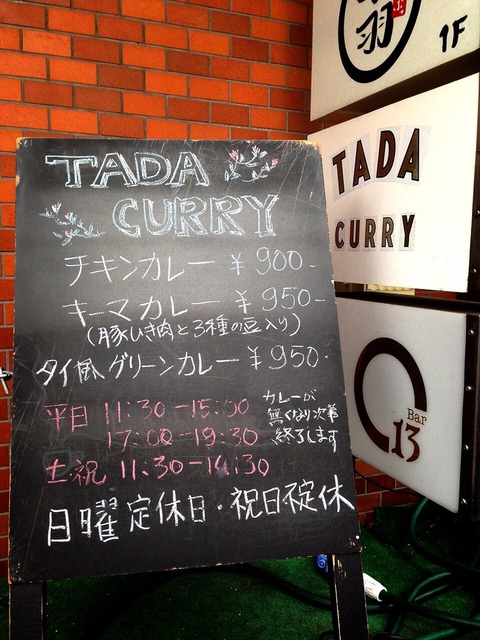 TADA
CURRY
チキンカレー ¥900-
キーマカレー ¥950-
(豚ひき肉と3種の豆入り)
タイ風グリーンカレー ¥950-
平日 11:30-15:00
17:00-19:30
土・祝 11:30-14:30
カレーが
無くなり次第
終了します
日曜定休日・祝日不定休
羽
1F
TADA
CURRY
Bar
13